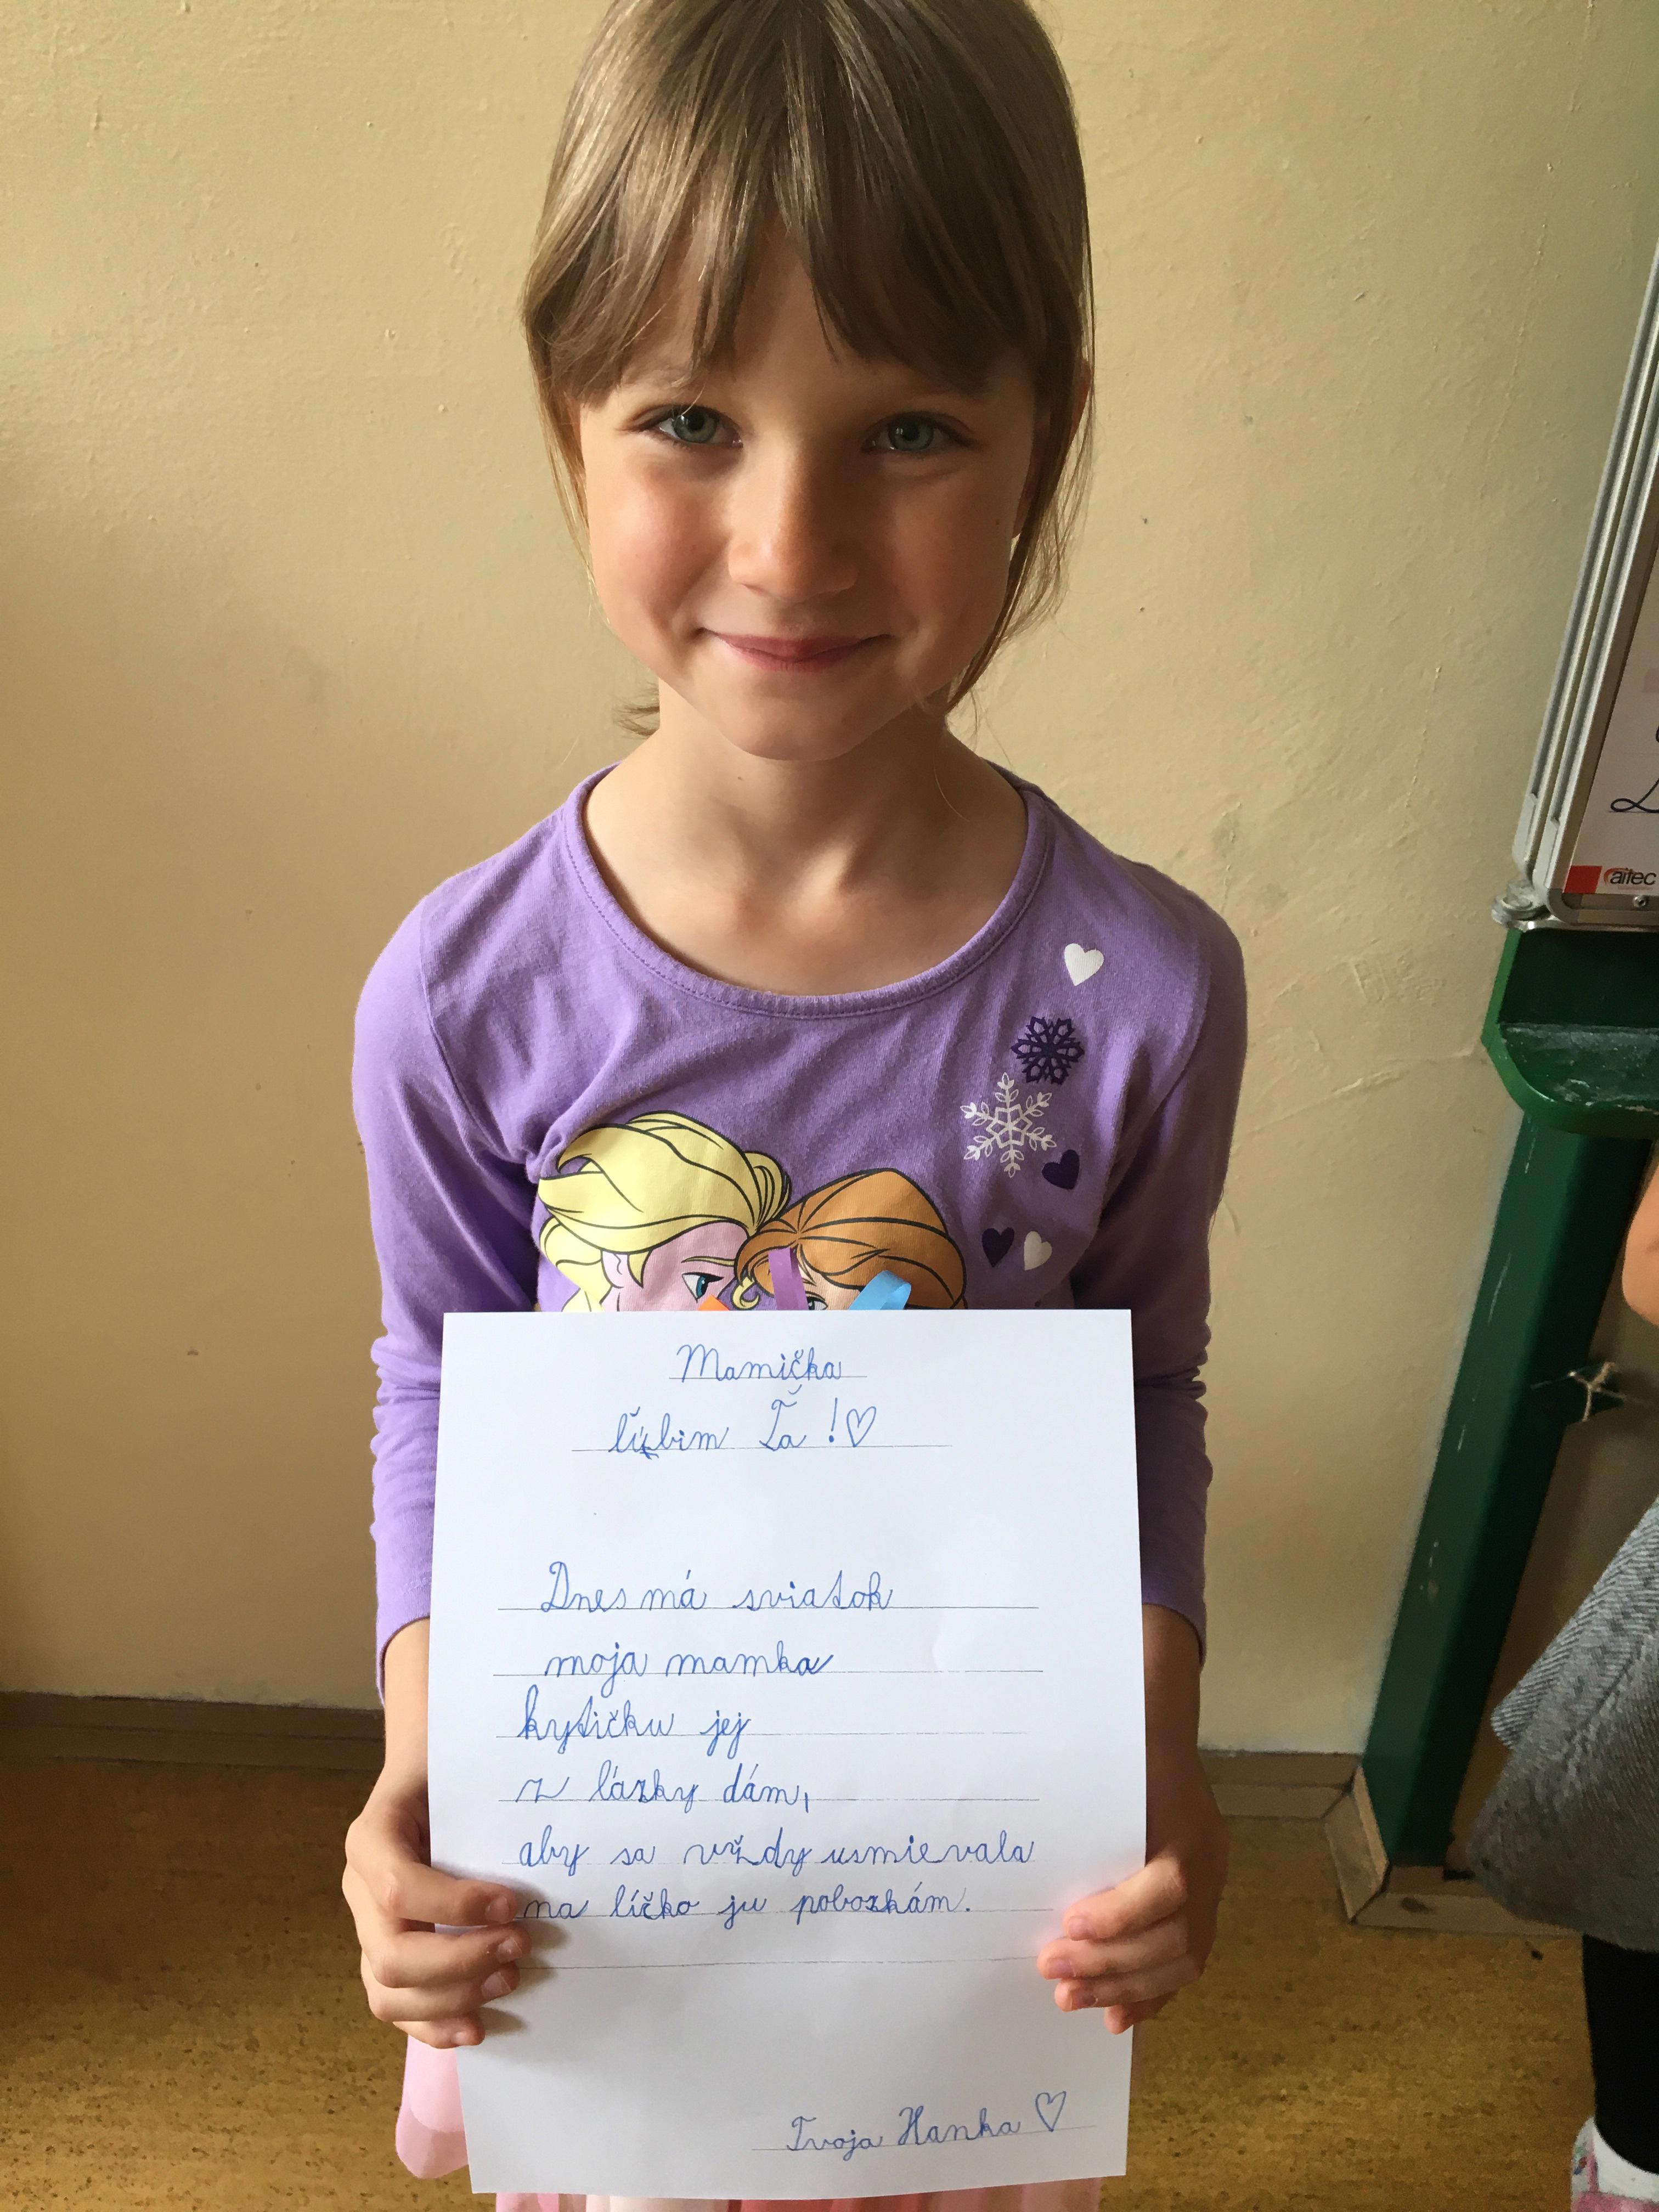 Mamička
ľúbim Ťa !♡
Dnes má sviatok
moja mamka
kytičku jej
z lásky dám,
aby sa vždy usmievala
na líčko ju pobozkám.
Tvoja Hanka ♡
aitec